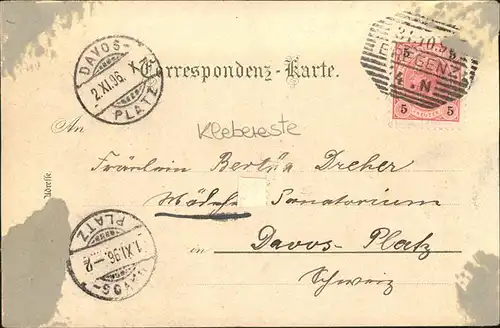 DAVOS-PLATZ
2.XI.96.X
Correspondenz-Karte.
BREGENZ
4.N
5 5
5 5
Klebereste
An
Fräulein Bertha Dreher
Sanatorium
in Davos-Platz
Schweiz
Adresse
DAVOS-PLATZ
1.XI.96.-2